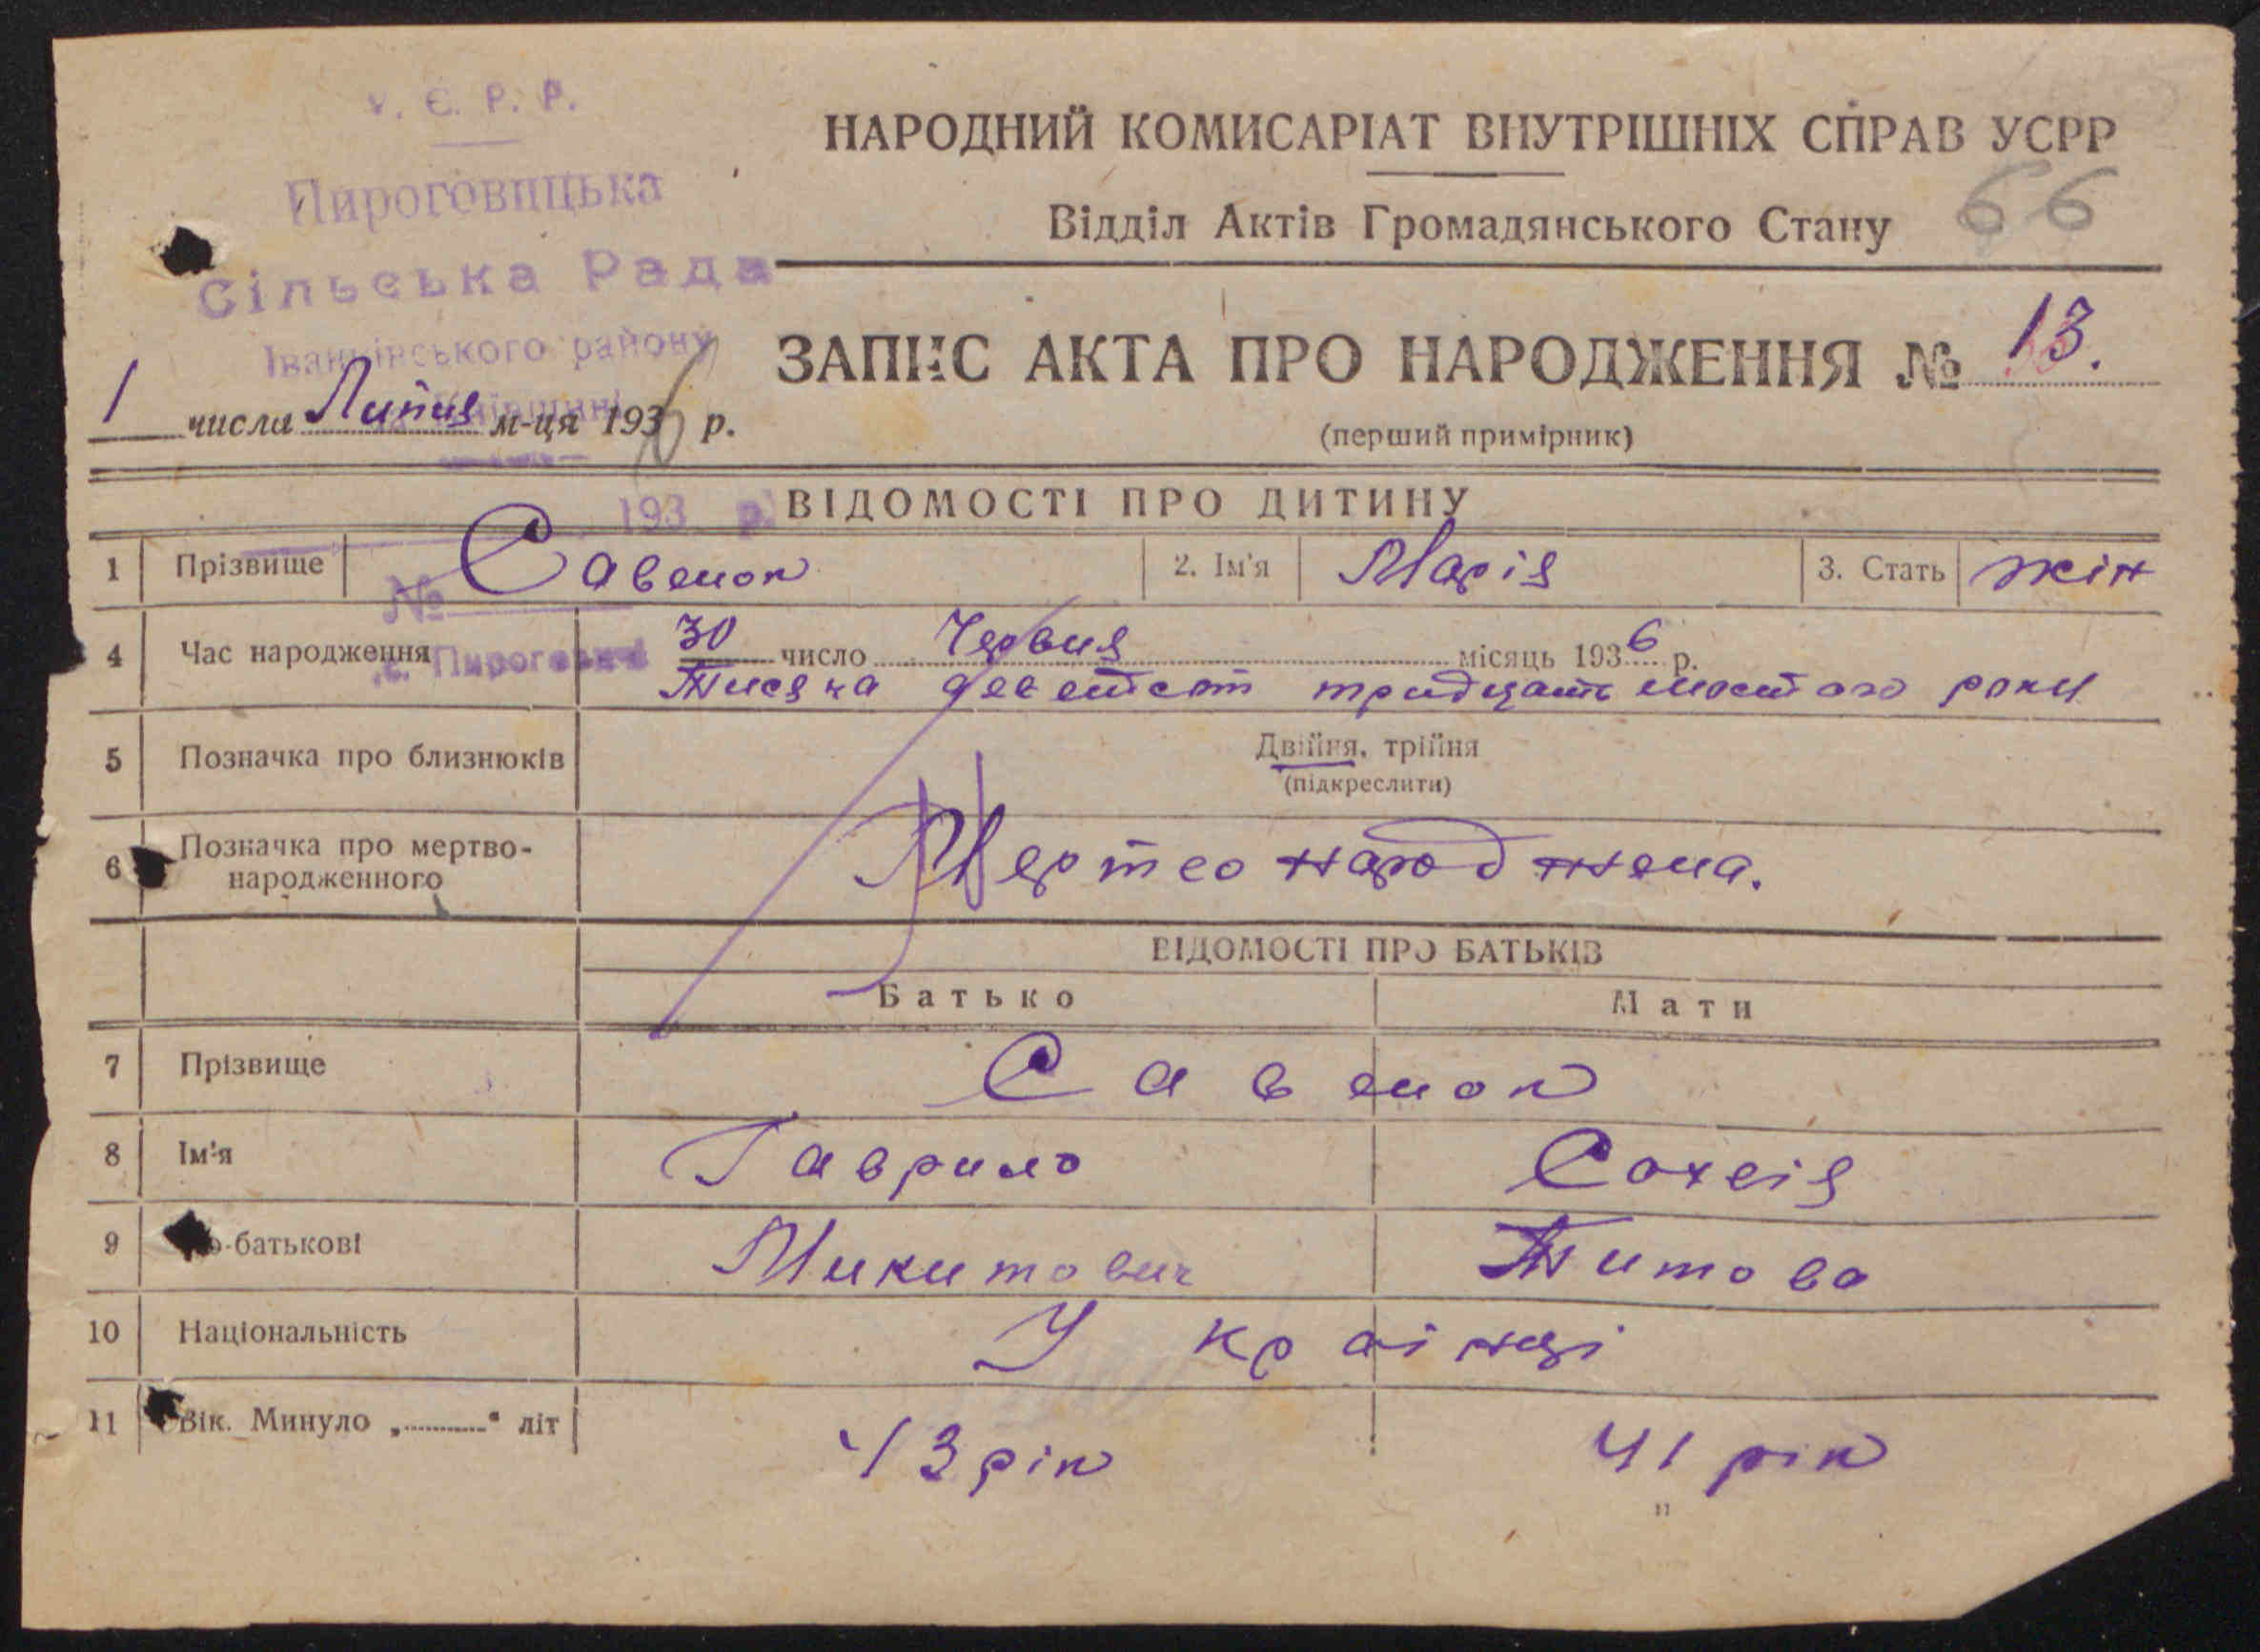 У. С. Р. Р.
Пироговицька
Сільська Рада
Іванківського району
Київщині
193 р.
№
с. Пирогов
НАРОДНИЙ КОМИСАРІАТ ВНУТРІШНІХ СПРАВ УСРР
Відділ Актів Громадянського Стану 66
ЗАПИС АКТА ПРО НАРОДЖЕННЯ № 13.
(перший примірник)
1 числа Липня м-ця 1936 р.
ВІДОМОСТІ ПРО ДИТИНУ
1 Прізвище Савенок 2. Ім'я Марія 3. Стать жін
4 Час народження 30 число Червня місяць 1936 р.
Тисяча девятсот тридцять шостого року
5 Позначка про близнюків Двійня, трійня
(підкреслити)
6 Позначка про мертво-
народженного Мертво народжена.
ВІДОМОСТІ ПРО БАТЬКІВ
Батько Мати
7 Прізвище Савенок
8 Ім'я Гаврило Сохвія
9 По-батькові Микитович Титова
10 Національність Українці
11 Вік. Минуло „ " літ 43 рік 41 рік